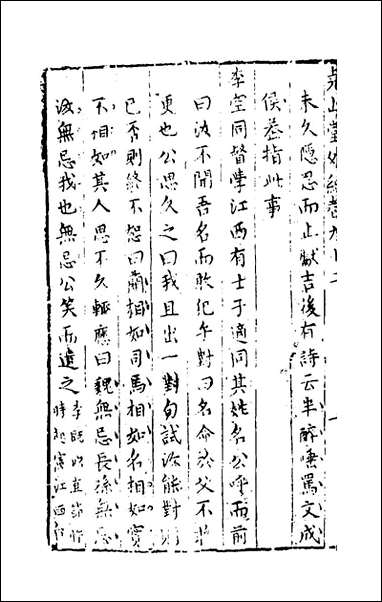 堯山堂外紀卷九十二
未久隱忍而止獻吉後有詩云半醉唾罵文成
侯葢指此事
李空同督學江西有士子適同其姓名公呼而前
曰汝不聞吾名而敢犯乎對曰名命於父不敢
更也公思久之曰我且出一對句試汝能對則
已否則終不恕曰藺相如司馬相如名相如實
不相如其人思不久輒應曰魏無忌長孫無忌
汝無忌我也無忌公笑而遣之
時 江西